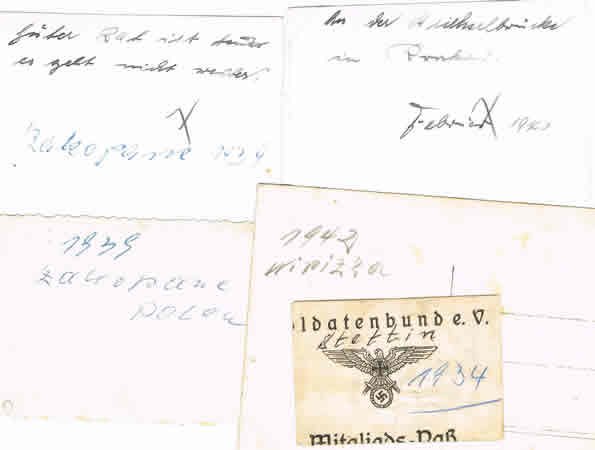 Guter Rat ist teuer
es geht nicht weiter!
Zakopane 1939
An der Weichselbrücke
in Krakau.
Februar
1939
Zakopane
Polen
1942
ldatenbund e. V.
Stettin
1934
Mitglieds-Paß